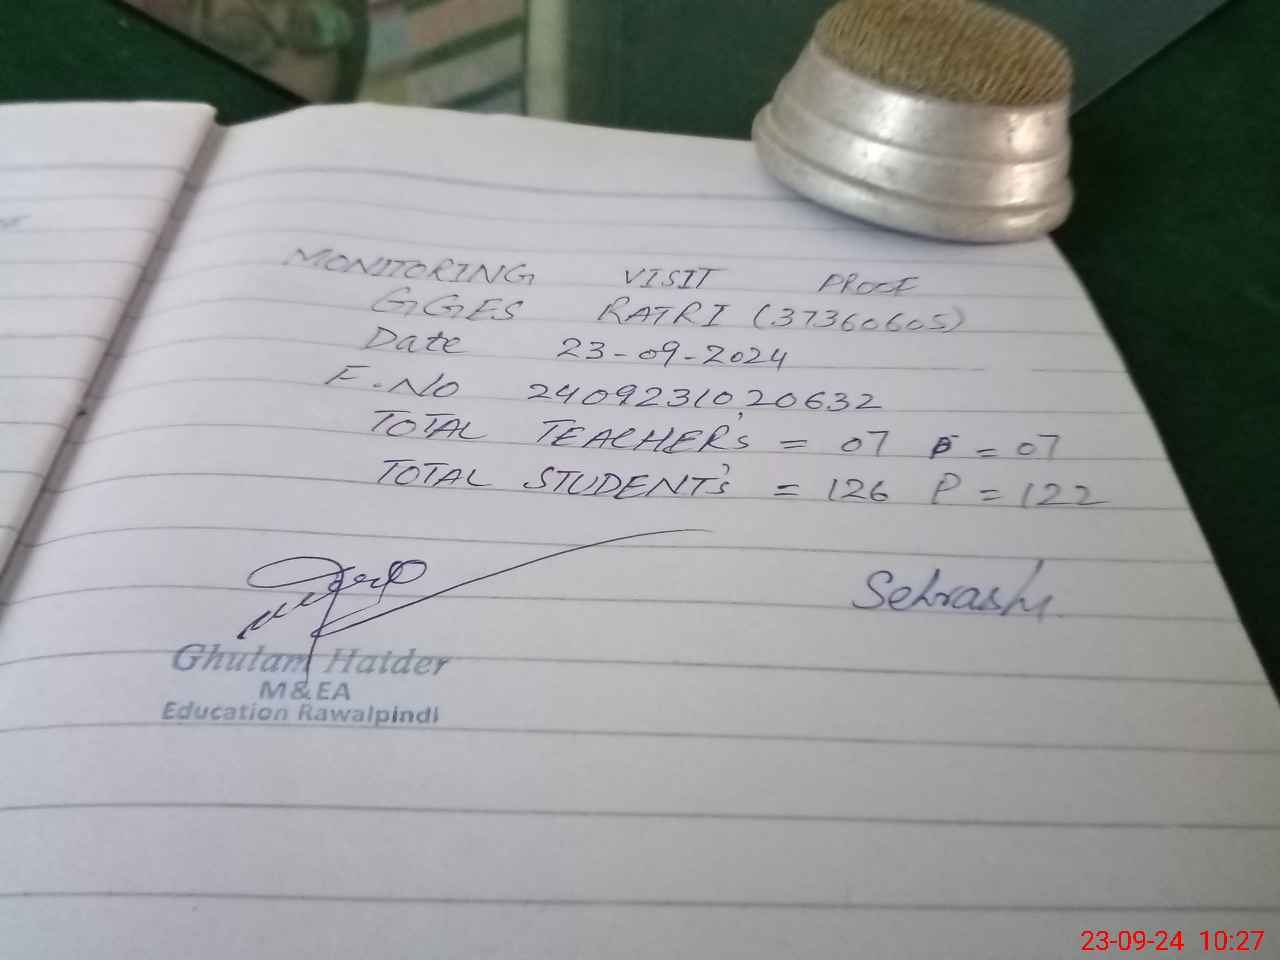 MONITORING VISIT PROOF
GGES RATRI (37360605)
Date 23-09-2024
F.No 2409231020632
TOTAL TEACHER's = 07 P = 07
TOTAL STUDENT's = 126 P = 122
Ghulam Haider
M&EA
Education Rawalpindi
23-09-24 10:27